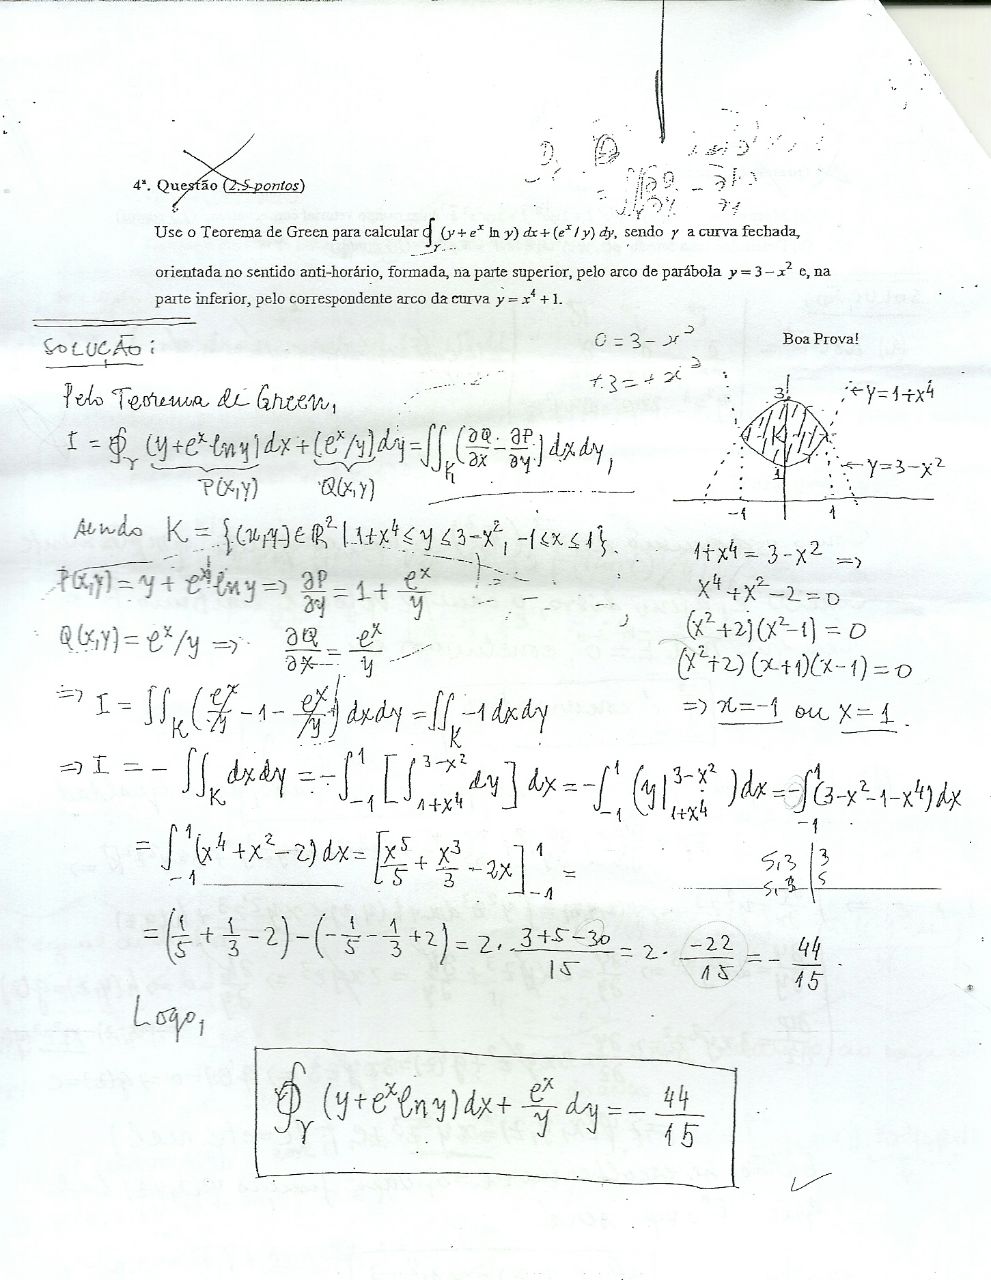 4ª. Questão (2.5 pontos)
Use o Teorema de Green para calcular ∮_γ (y + e^x ln y) dx + (e^x / y) dy, sendo γ a curva fechada,
orientada no sentido anti-horário, formada, na parte superior, pelo arco de parábola y = 3 − x² e, na
parte inferior, pelo correspondente arco da curva y = x⁴ + 1.
Boa Prova!
SOLUÇÃO:
0 = 3 − x²
+3 = + x²
Pelo Teorema de Green,
I = ∮_γ (y + e^x ln y) dx + (e^x/y) dy = ∬_K (∂Q/∂x − ∂P/∂y) dx dy,
P(x,y) Q(x,y)
3
y = 1 + x⁴
K
y = 3 − x²
1
−1 1
sendo K = {(x,y) ∈ ℝ² | 1 + x⁴ ≤ y ≤ 3 − x², −1 ≤ x ≤ 1}.
P(x,y) = y + e^x ln y => ∂P/∂y = 1 + e^x/y
Q(x,y) = e^x/y => ∂Q/∂x = e^x/y
1 + x⁴ = 3 − x² =>
x⁴ + x² − 2 = 0
(x² + 2)(x² − 1) = 0
(x² + 2)(x + 1)(x − 1) = 0
=> x = −1 ou x = 1.
=> I = ∬_K (e^x/y − 1 − e^x/y) dx dy = ∬_K −1 dx dy
=> I = − ∬_K dx dy = −∫_{−1}^{1} [∫_{1+x⁴}^{3−x²} dy] dx = −∫_{−1}^{1} (y|_{1+x⁴}^{3−x²}) dx = −∫_{−1}^{1} (3 − x² − 1 − x⁴) dx
= ∫_{−1}^{1} (x⁴ + x² − 2) dx = [x⁵/5 + x³/3 − 2x]_{−1}^{1} =
5,3 | 3
= (1/5 + 1/3 − 2) − (−1/5 − 1/3 + 2) = 2 · (3 + 5 − 30)/15 = 2 · −22/15 = − 44/15.
Logo,
∮_γ (y + e^x ln y) dx + e^x/y dy = − 44/15